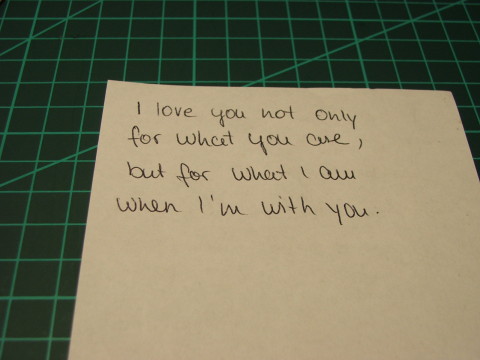 I love you not only
for what you are,
but for what I am
when I'm with you.